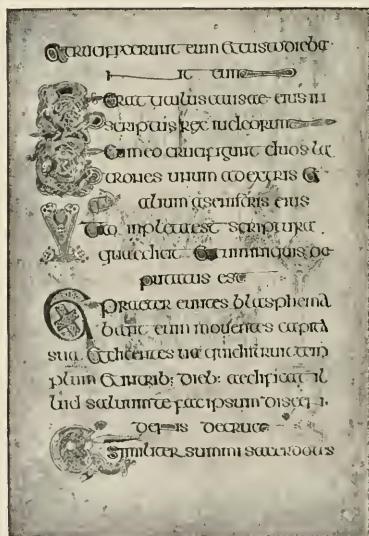 Et crucifixerunt eum et custodieba
nt eum
Et erat titulus causae eius in
scriptus rex iudeorum
Et cum eo crucifigunt duos la
trones unum a dextris et
alium a senistris eius
inpleta est scriptura
quae dicit Et cum iniquis de
putatus est
Et praeter euntes blasphema
bant eum mouentes capita
sua Et dicentes ua qui distruit tem
plum Et in trib: dieb: aedificat il
lud saluum te fac ipsum discen
dens de cruce
Similiter summi sacerdotes